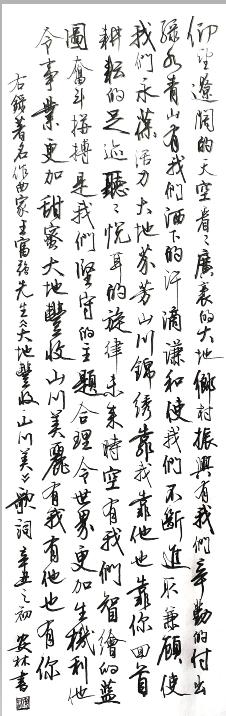 仰望遼闊的天空看々廣袤的大地鄉村振興有我們辛勤的付出
綠水青山有我們洒下的汗滴謙和使我們不斷進取兼顧使
我們永葆活力大地芬芳山川錦綉靠我靠他也靠你回首
耕耘的足迹聽々悅耳的旋律未來時空有我們智繪的藍
圖奮斗拼搏是我們堅守的主題合理令世界更加生機利他
令事業更加甜蜜大地豐收山川美麗有我有他也有你
右錄著名作曲家王富强先生大地豐收山川美歌詞辛丑之初安林書